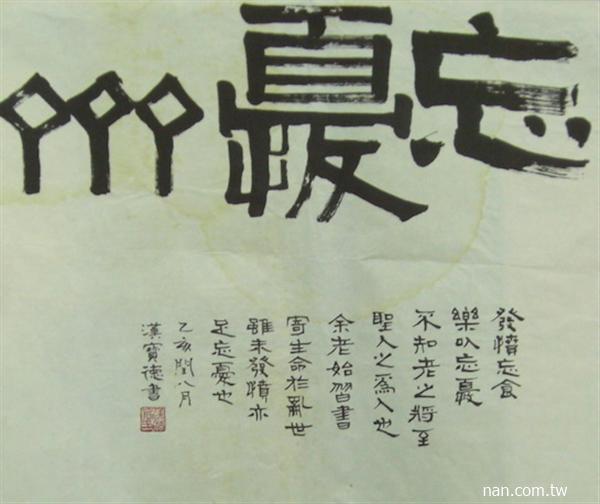 忘憂
發憤忘食
樂以忘憂
不知老之將至
聖人之爲人也
余老始習書
寄生命於亂世
雖未發憤亦
足忘憂也
乙亥閏八月
漢寶德書
nan.com.tw